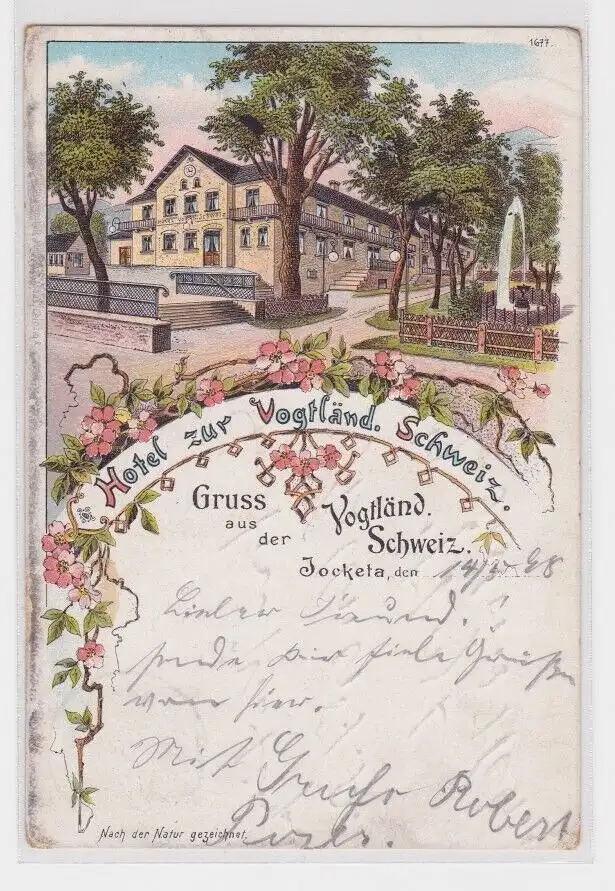 1677.
Hotel zur Vogtländ. Schweiz.
Gruss
aus
der
Vogtländ.
Schweiz.
Jocketa, den 14/5 98
Lieber Freund.
sende dir fiele Grüße
von hier.
Mit Gruß Robert
Nach der Natur gezeichnet.